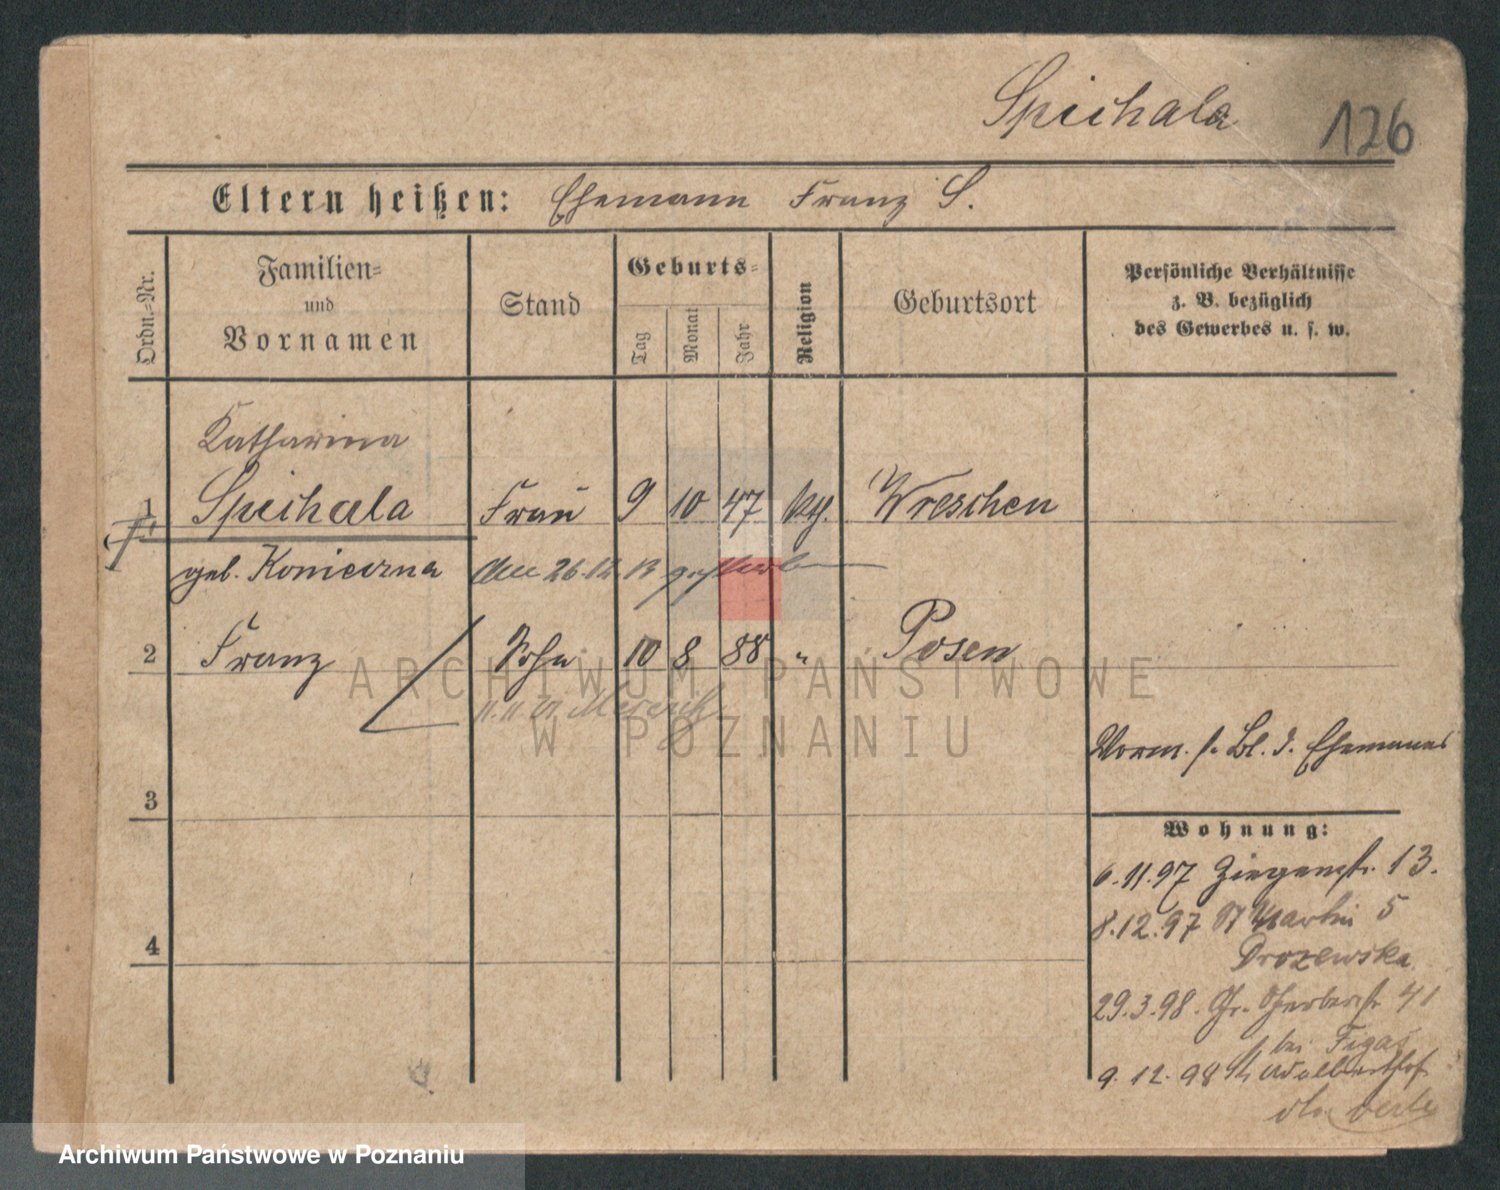 Spichala
126
Eltern heißen: Ehemann Franz S.
Ordn.-Nr.
Familien-
und
Vornamen
Stand
Geburts-
Tag
Monat
Jahr
Religion
Geburtsort
Persönliche Verhältnisse
z. B. bezüglich
des Gewerbes u. s. w.
Katharina
1 Spichala Frau 9 10 47 kth. Wreschen
geb. Konieczna
26.12.13 gestorben
2 Franz Sohn 10 8 88 " Posen
ARCHIWUM PAŃSTWOWE
W POZNANIU
Verm. s. Bl. d. Ehemannes
3
Wohnung:
6.11.97 Ziegenstr. 13.
8.12.97 St Martin 5
Drozewska
4
29.3.98. Gr. Gerberstr 41
bei Figas
9.12.98
Archiwum Państwowe w Poznaniu